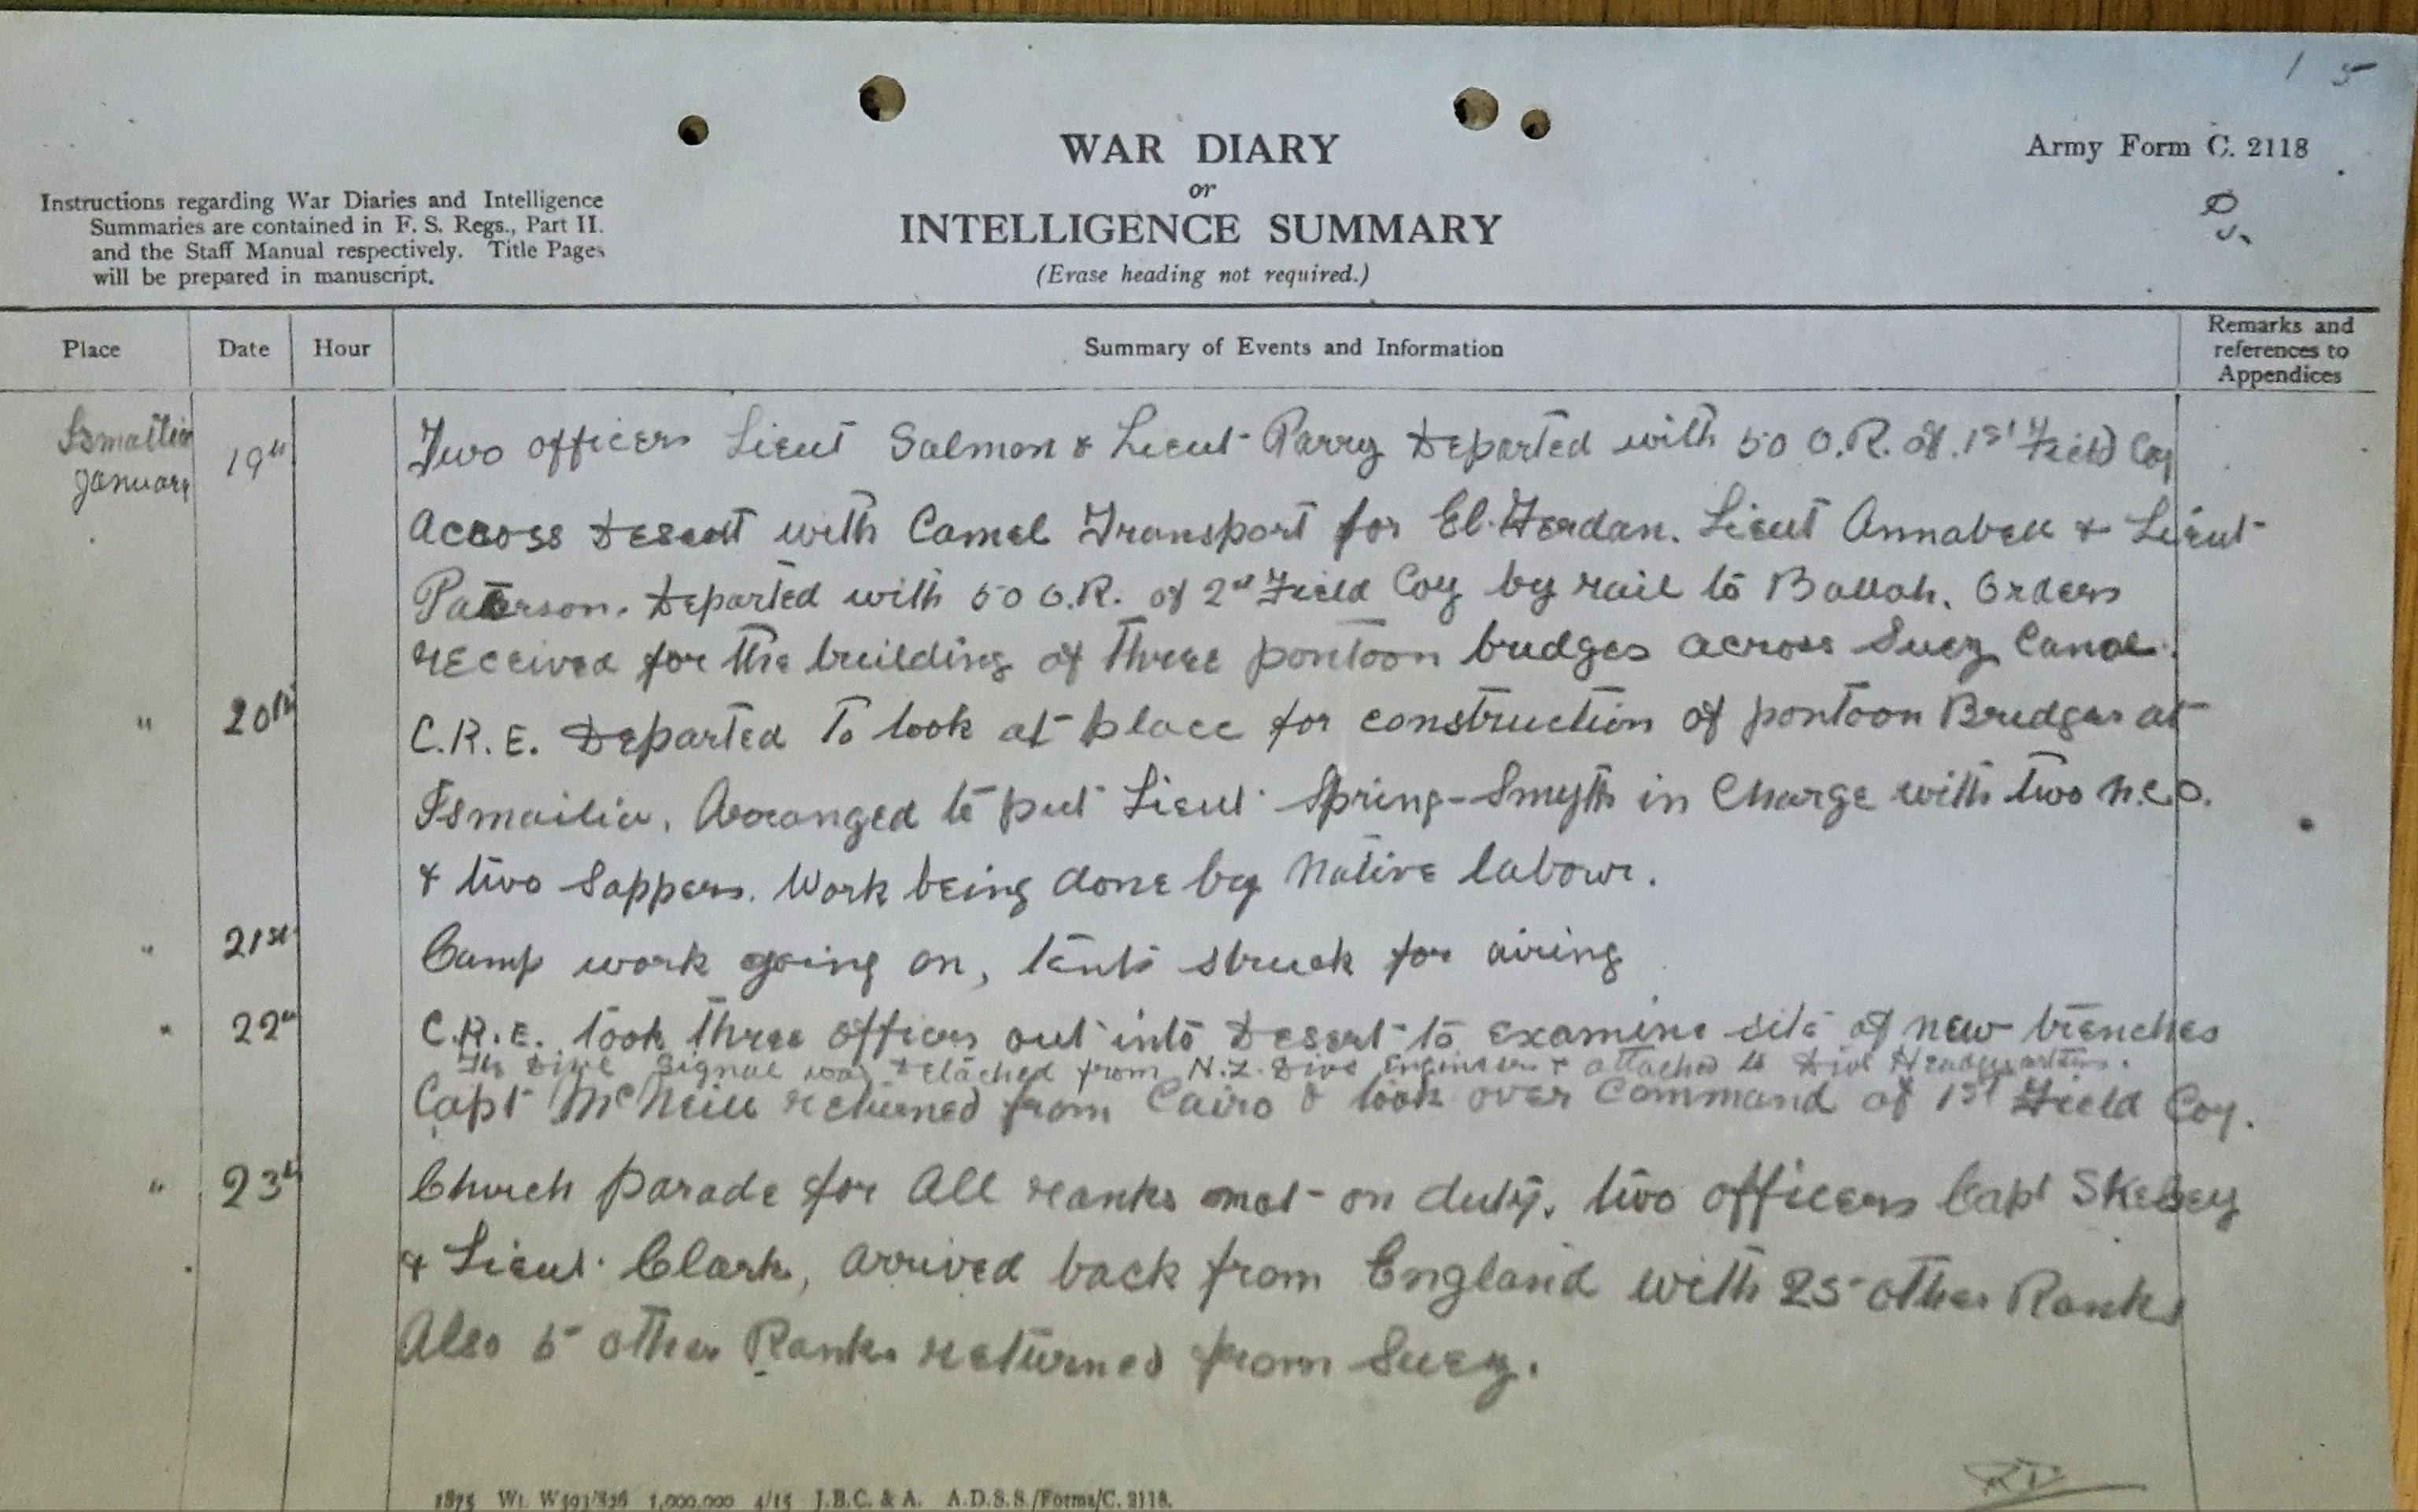 1 5
WAR DIARY
or
INTELLIGENCE SUMMARY
(Erase heading not required.)
Army Form C. 2118
Instructions regarding War Diaries and Intelligence
Summaries are contained in F. S. Regs., Part II.
and the Staff Manual respectively. Title Pages
will be prepared in manuscript.
Place Date Hour Summary of Events and Information Remarks and references to Appendices
Ismailia January 19th Two officers Lieut Salmon & Lieut Parry Departed with 50 O.R. of 1st Field Coy
Across Desert with Camel Transport for El-Ferdan. Lieut Annabell & Lieut
Paterson. Departed with 50 O.R. of 2nd Field Coy by rail to Ballah. Orders
received for the building of three pontoon bridges across Suez Canal.
" 20th C.R.E. Departed To look at place for construction of pontoon Bridges at
Ismailia. Arranged to put Lieut Spring-Smyth in Charge with two N.C.O.
& two Sappers. Work being done by Native labour.
" 21st Camp work going on, tents struck for airing
" 22nd C.R.E. took three officers out into Desert to examine site of new trenches
The Divl Signal was Detached from N.Z. Divl Engineers & attached to Divl Headquarters.
Capt McNeill returned from Cairo & took over Command of 1st Field Coy.
" 23rd Church parade for All ranks not on duty. two officers Capt Skelsey
& Lieut. Clark, arrived back from England with 25 other Ranks
Also 5 other Ranks returned from Suez.
1875 Wt. W593/826 1,000,000 4/15 J.B.C. & A. A.D.S.S./Forms/C. 2118.